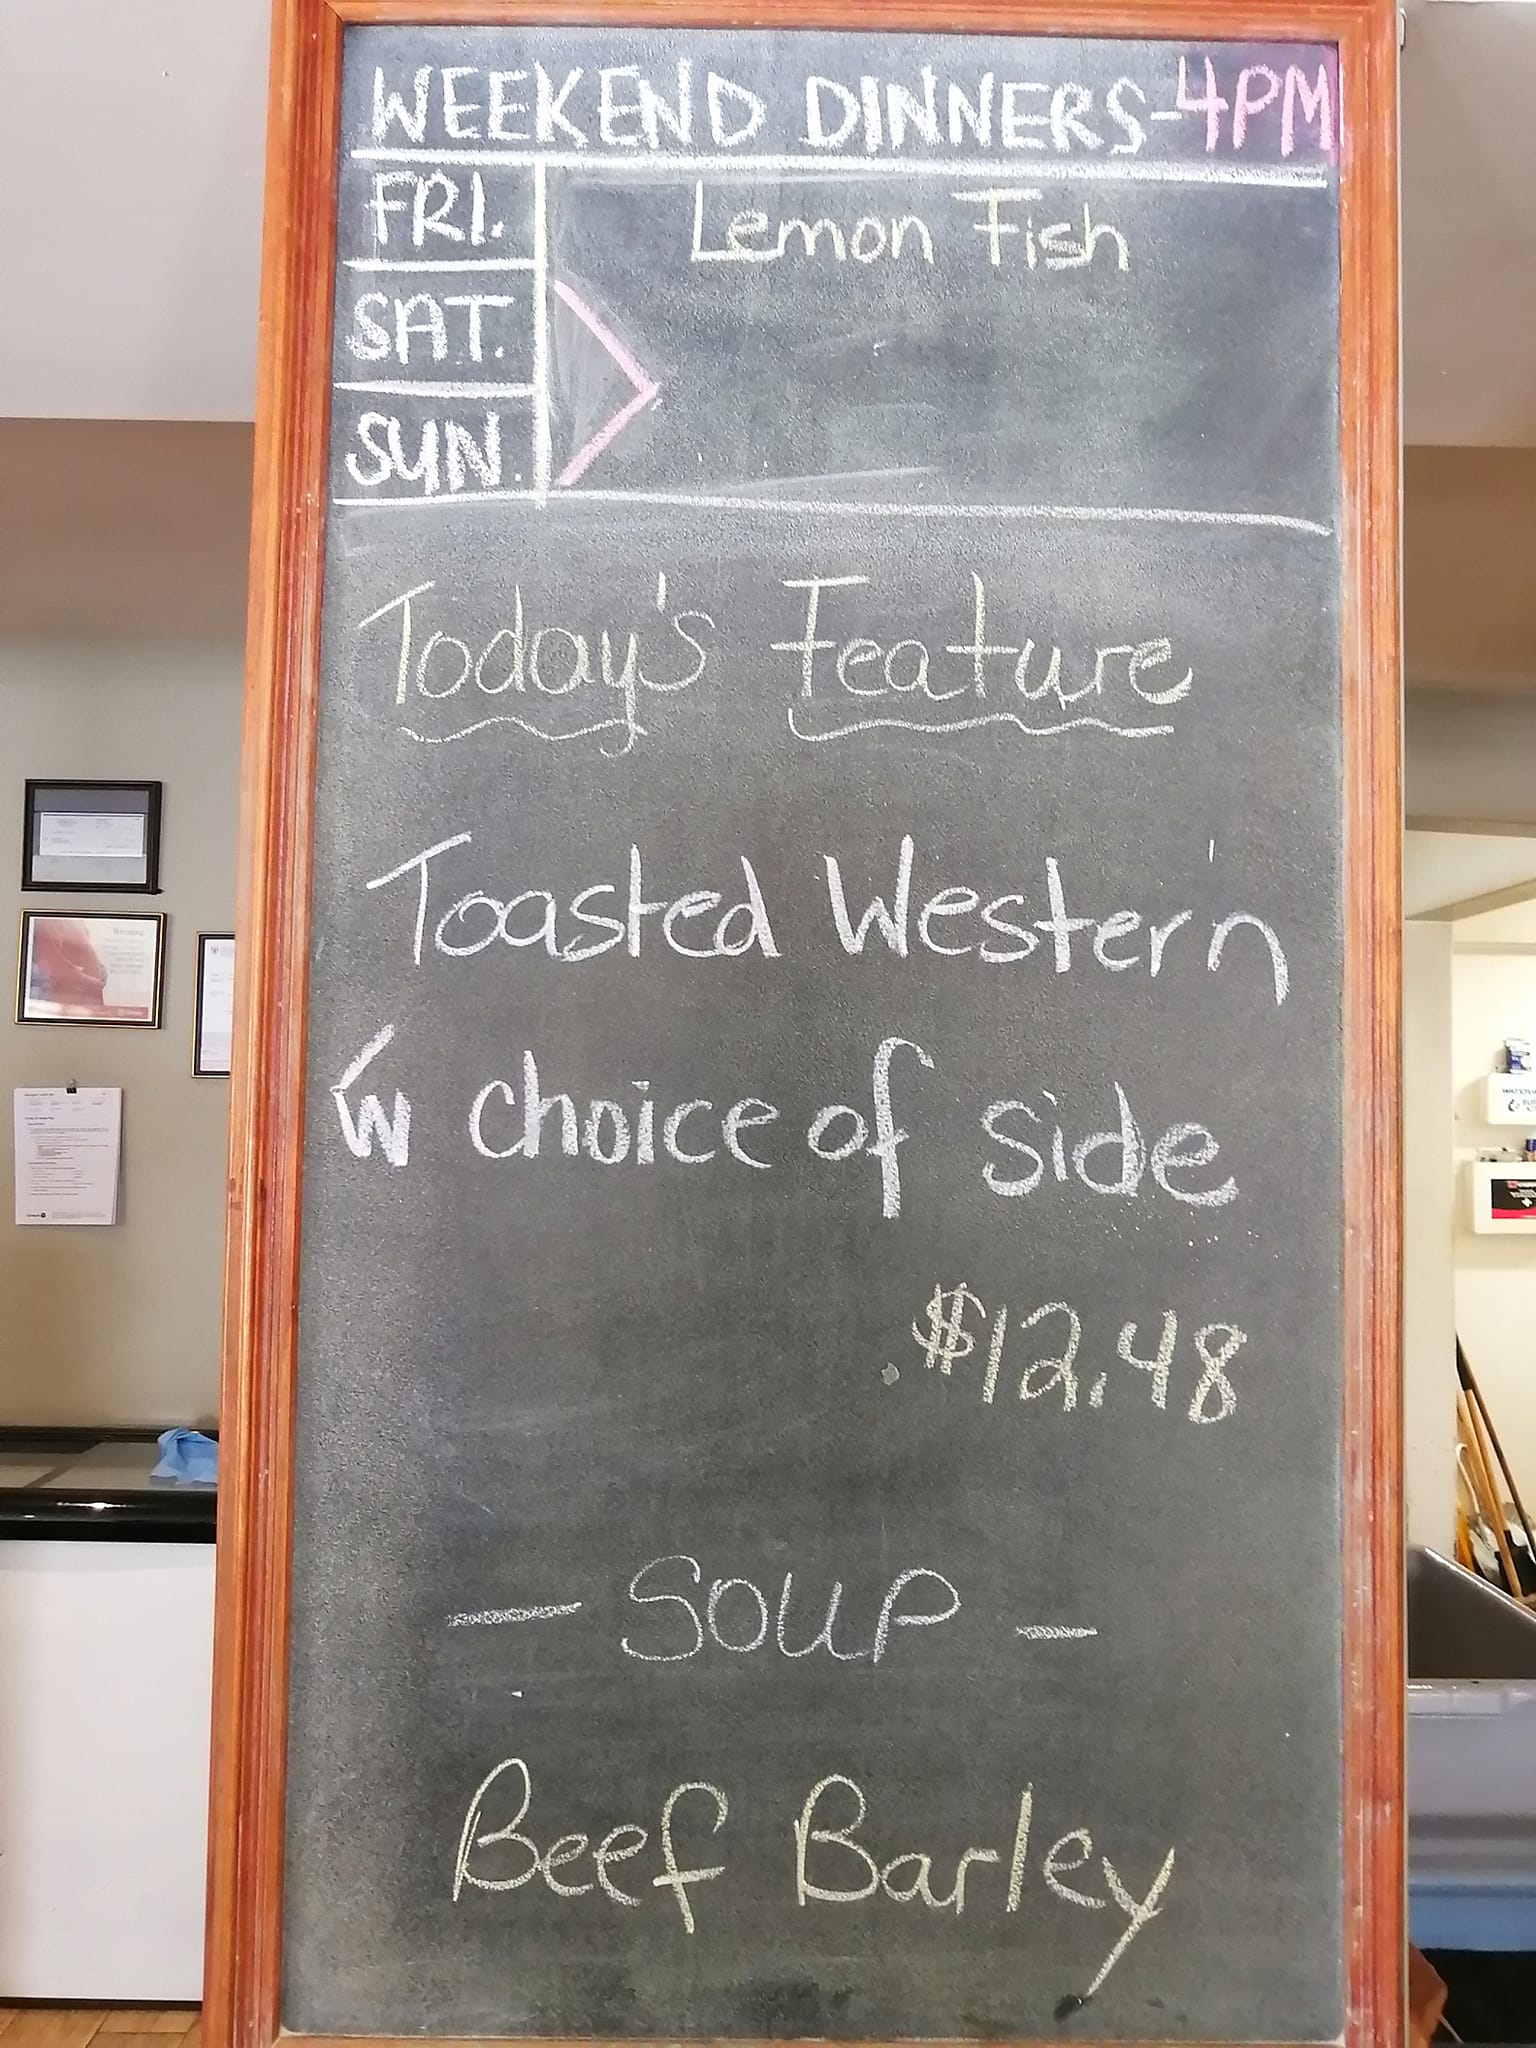 WEEKEND DINNERS-4PM
FRI. Lemon Fish
SAT.
SUN.
Today's Feature
Toasted Western
W choice of side
$12.48
- SOUP -
Beef Barley
Warning